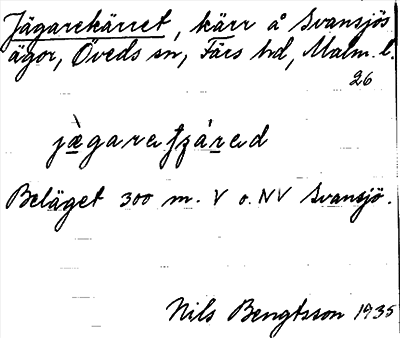 Jägarekärret, kärr å Svansjös
ägor, Öveds sn, Färs hd, Malm. l.
26
Beläget 300 m. V o. NV Svansjö.
Nils Bengtsson 1935